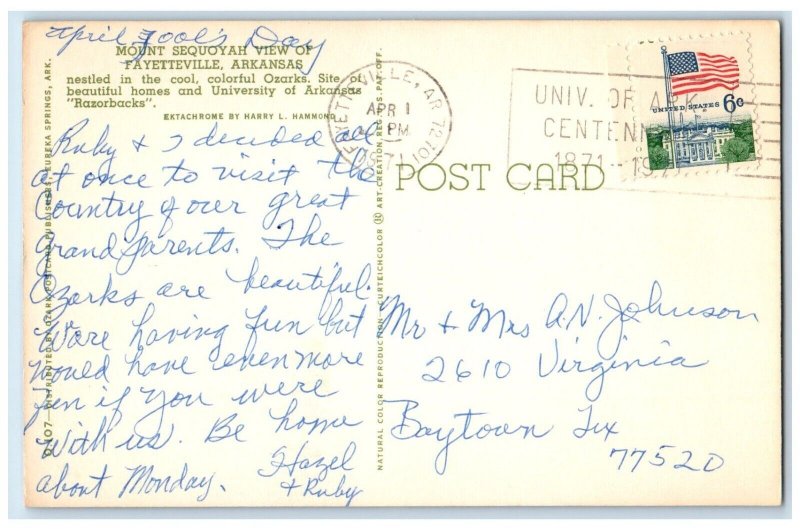 April Fool's Day
MOUNT SEQUOYAH VIEW OF
FAYETTEVILLE, ARKANSAS
nestled in the cool, colorful Ozarks. Site of
beautiful homes and University of Arkansas
"Razorbacks".
EKTACHROME BY HARRY L. HAMMOND
Ruby & I decided all
at once to visit the
Country of our great
grand parents. The
Ozarks are beautiful.
We're having fun but
would have even more
fun if you were
with us. Be home
about Monday.
Hazel
& Ruby
O-107—DISTRIBUTED BY OZARK POSTCARD PUBLISHERS, EUREKA SPRINGS, ARK.
NATURAL COLOR REPRODUCTION—CURTEICHCOLOR ® ART-CREATION, REG. U.S. PAT. OFF.
FAYETTEVILLE, AR 72701
APR 1
PM
1971
UNIV. OF ARK.
CENTENN
1871-197
UNITED STATES 6¢
POST CARD
Mr & Mrs A.N. Johnson
2610 Virginia
Baytown Tex
77520